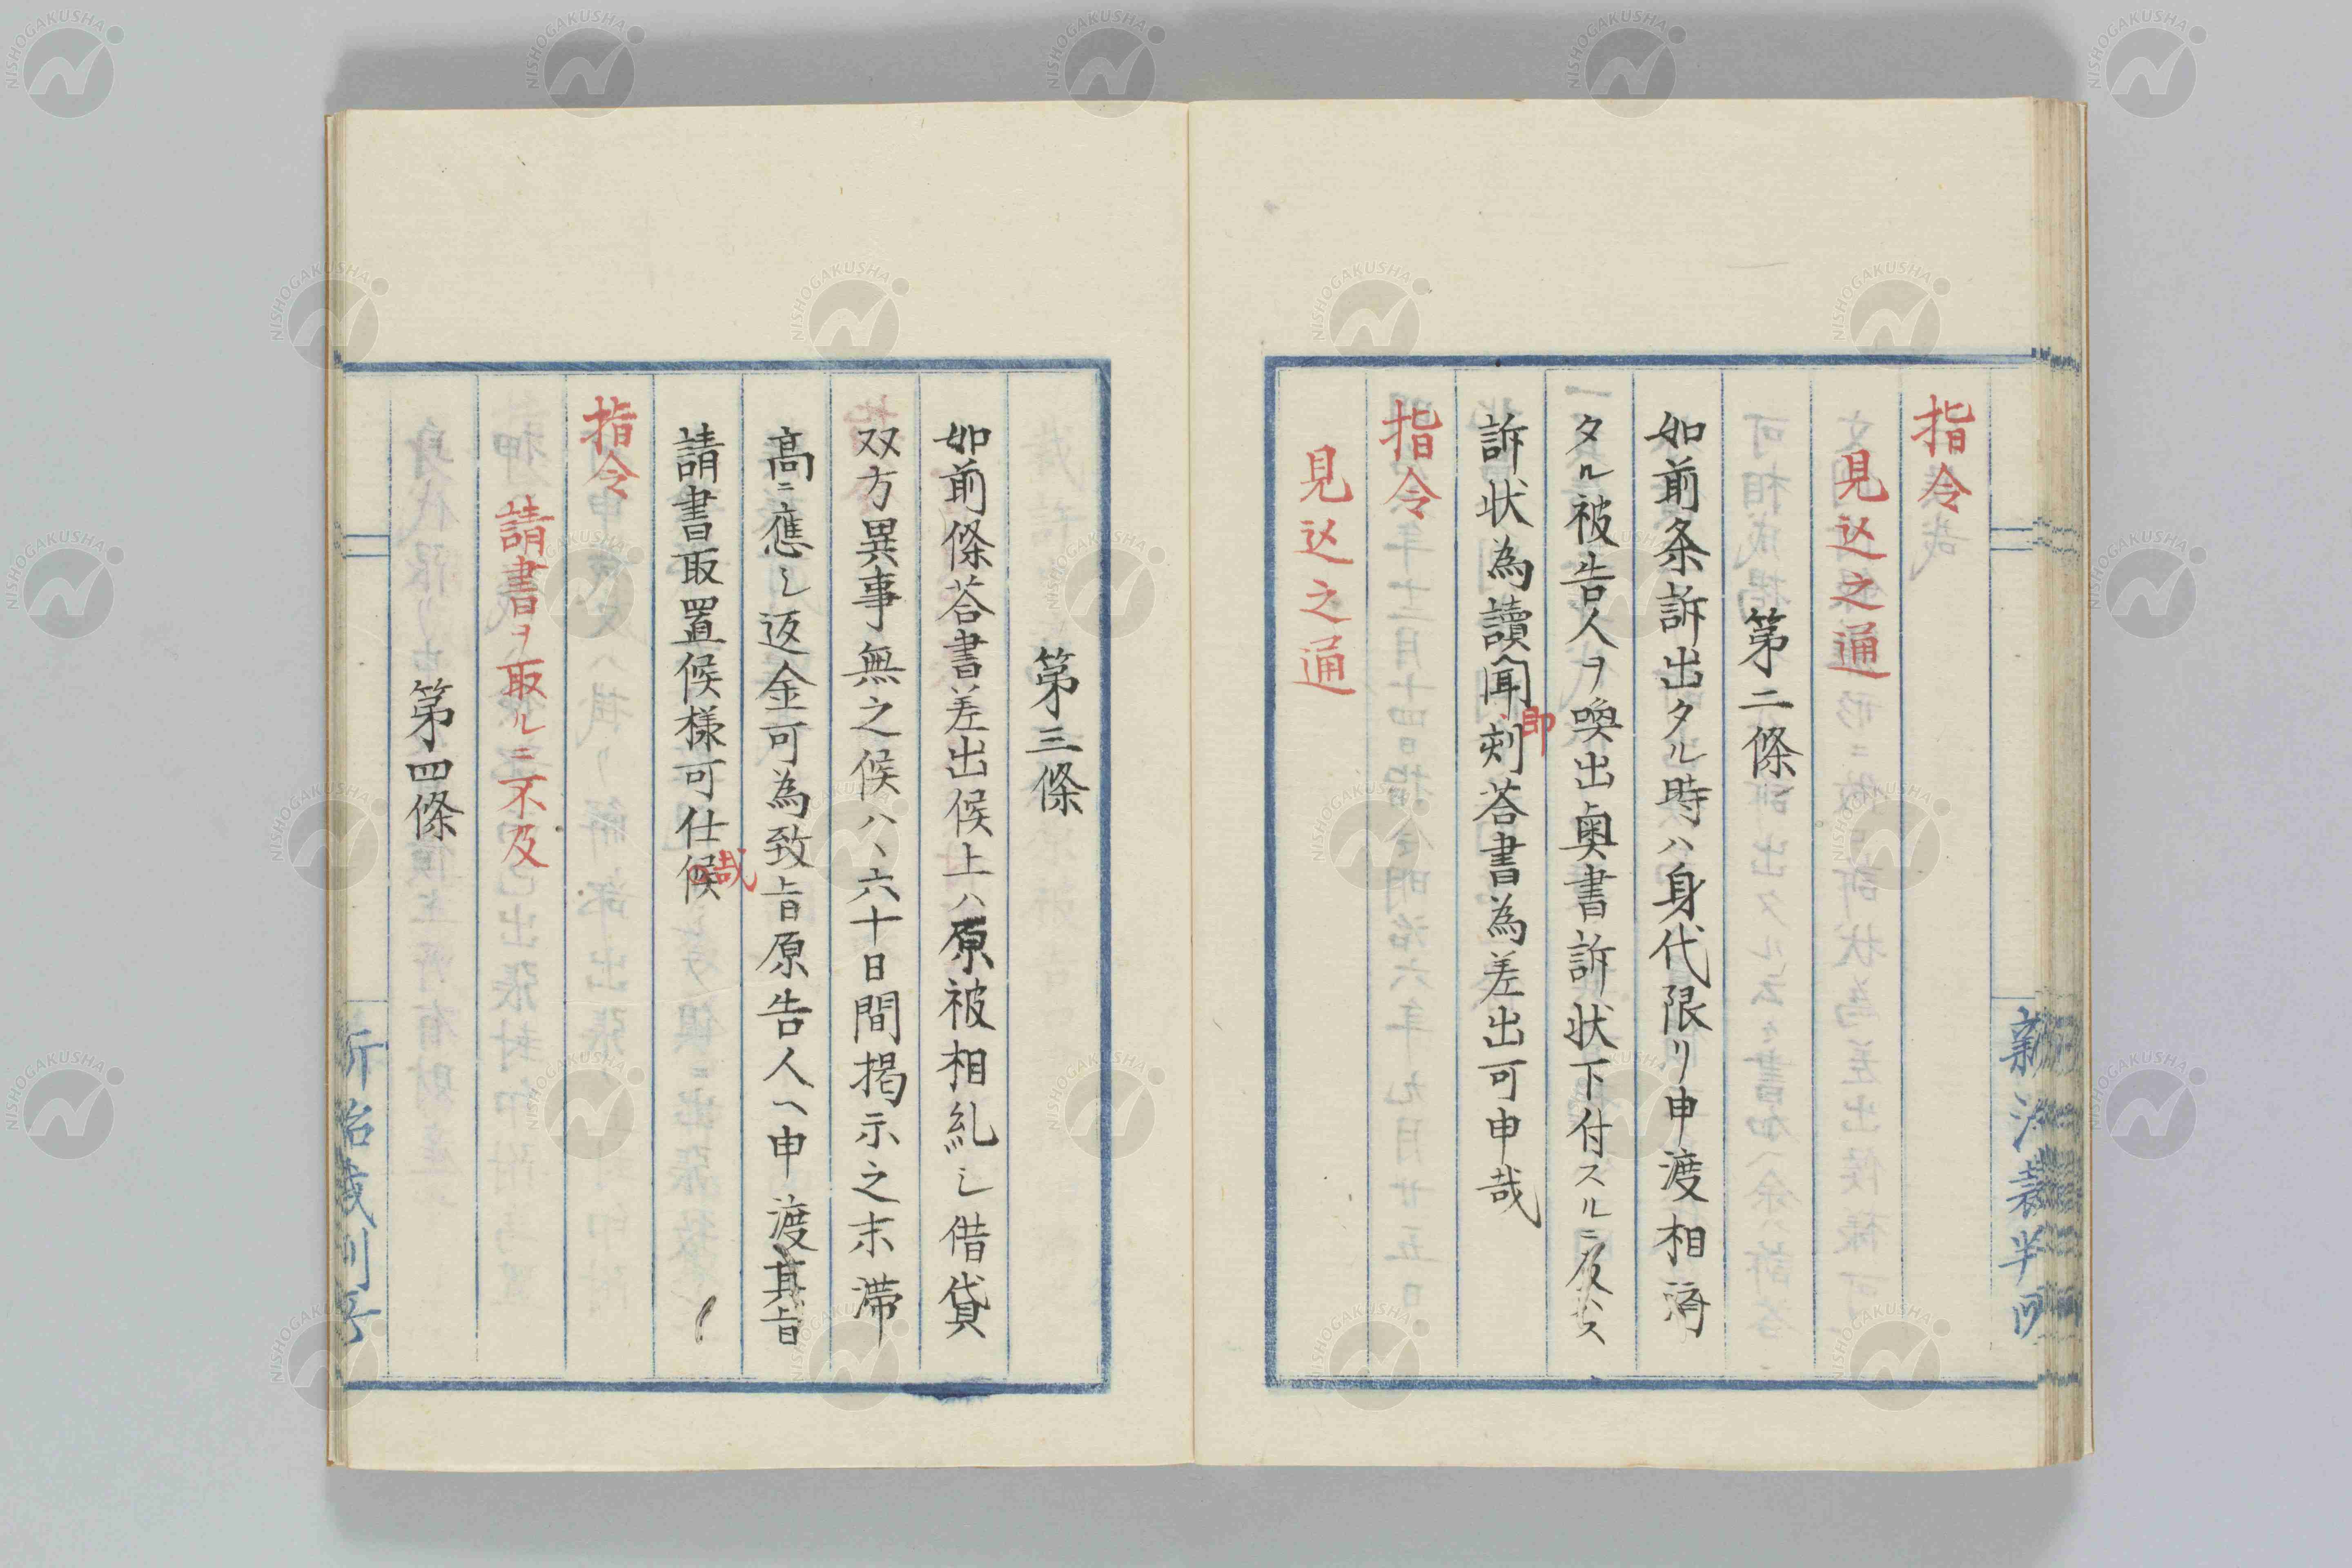 指令
見込之通
第二條
如前条訴出タル時ハ身代限リ申渡相済
タル被告人ヲ喚出奥書訴状下付スルニ及ハス
訴状為讀聞即刻荅書為差出可申哉
指令
見込之通
第三條
如前條荅書差出候上ハ原被相糺シ借貸
双方異事無之候ハヽ六十日間掲示之末滞
高ニ應シ返金可為致旨原告人ヘ申渡其旨
請書取置候様可仕候哉
指令
請書ヲ取ルニ不及
第四條
新治裁判所
NISHOGAKUSHA